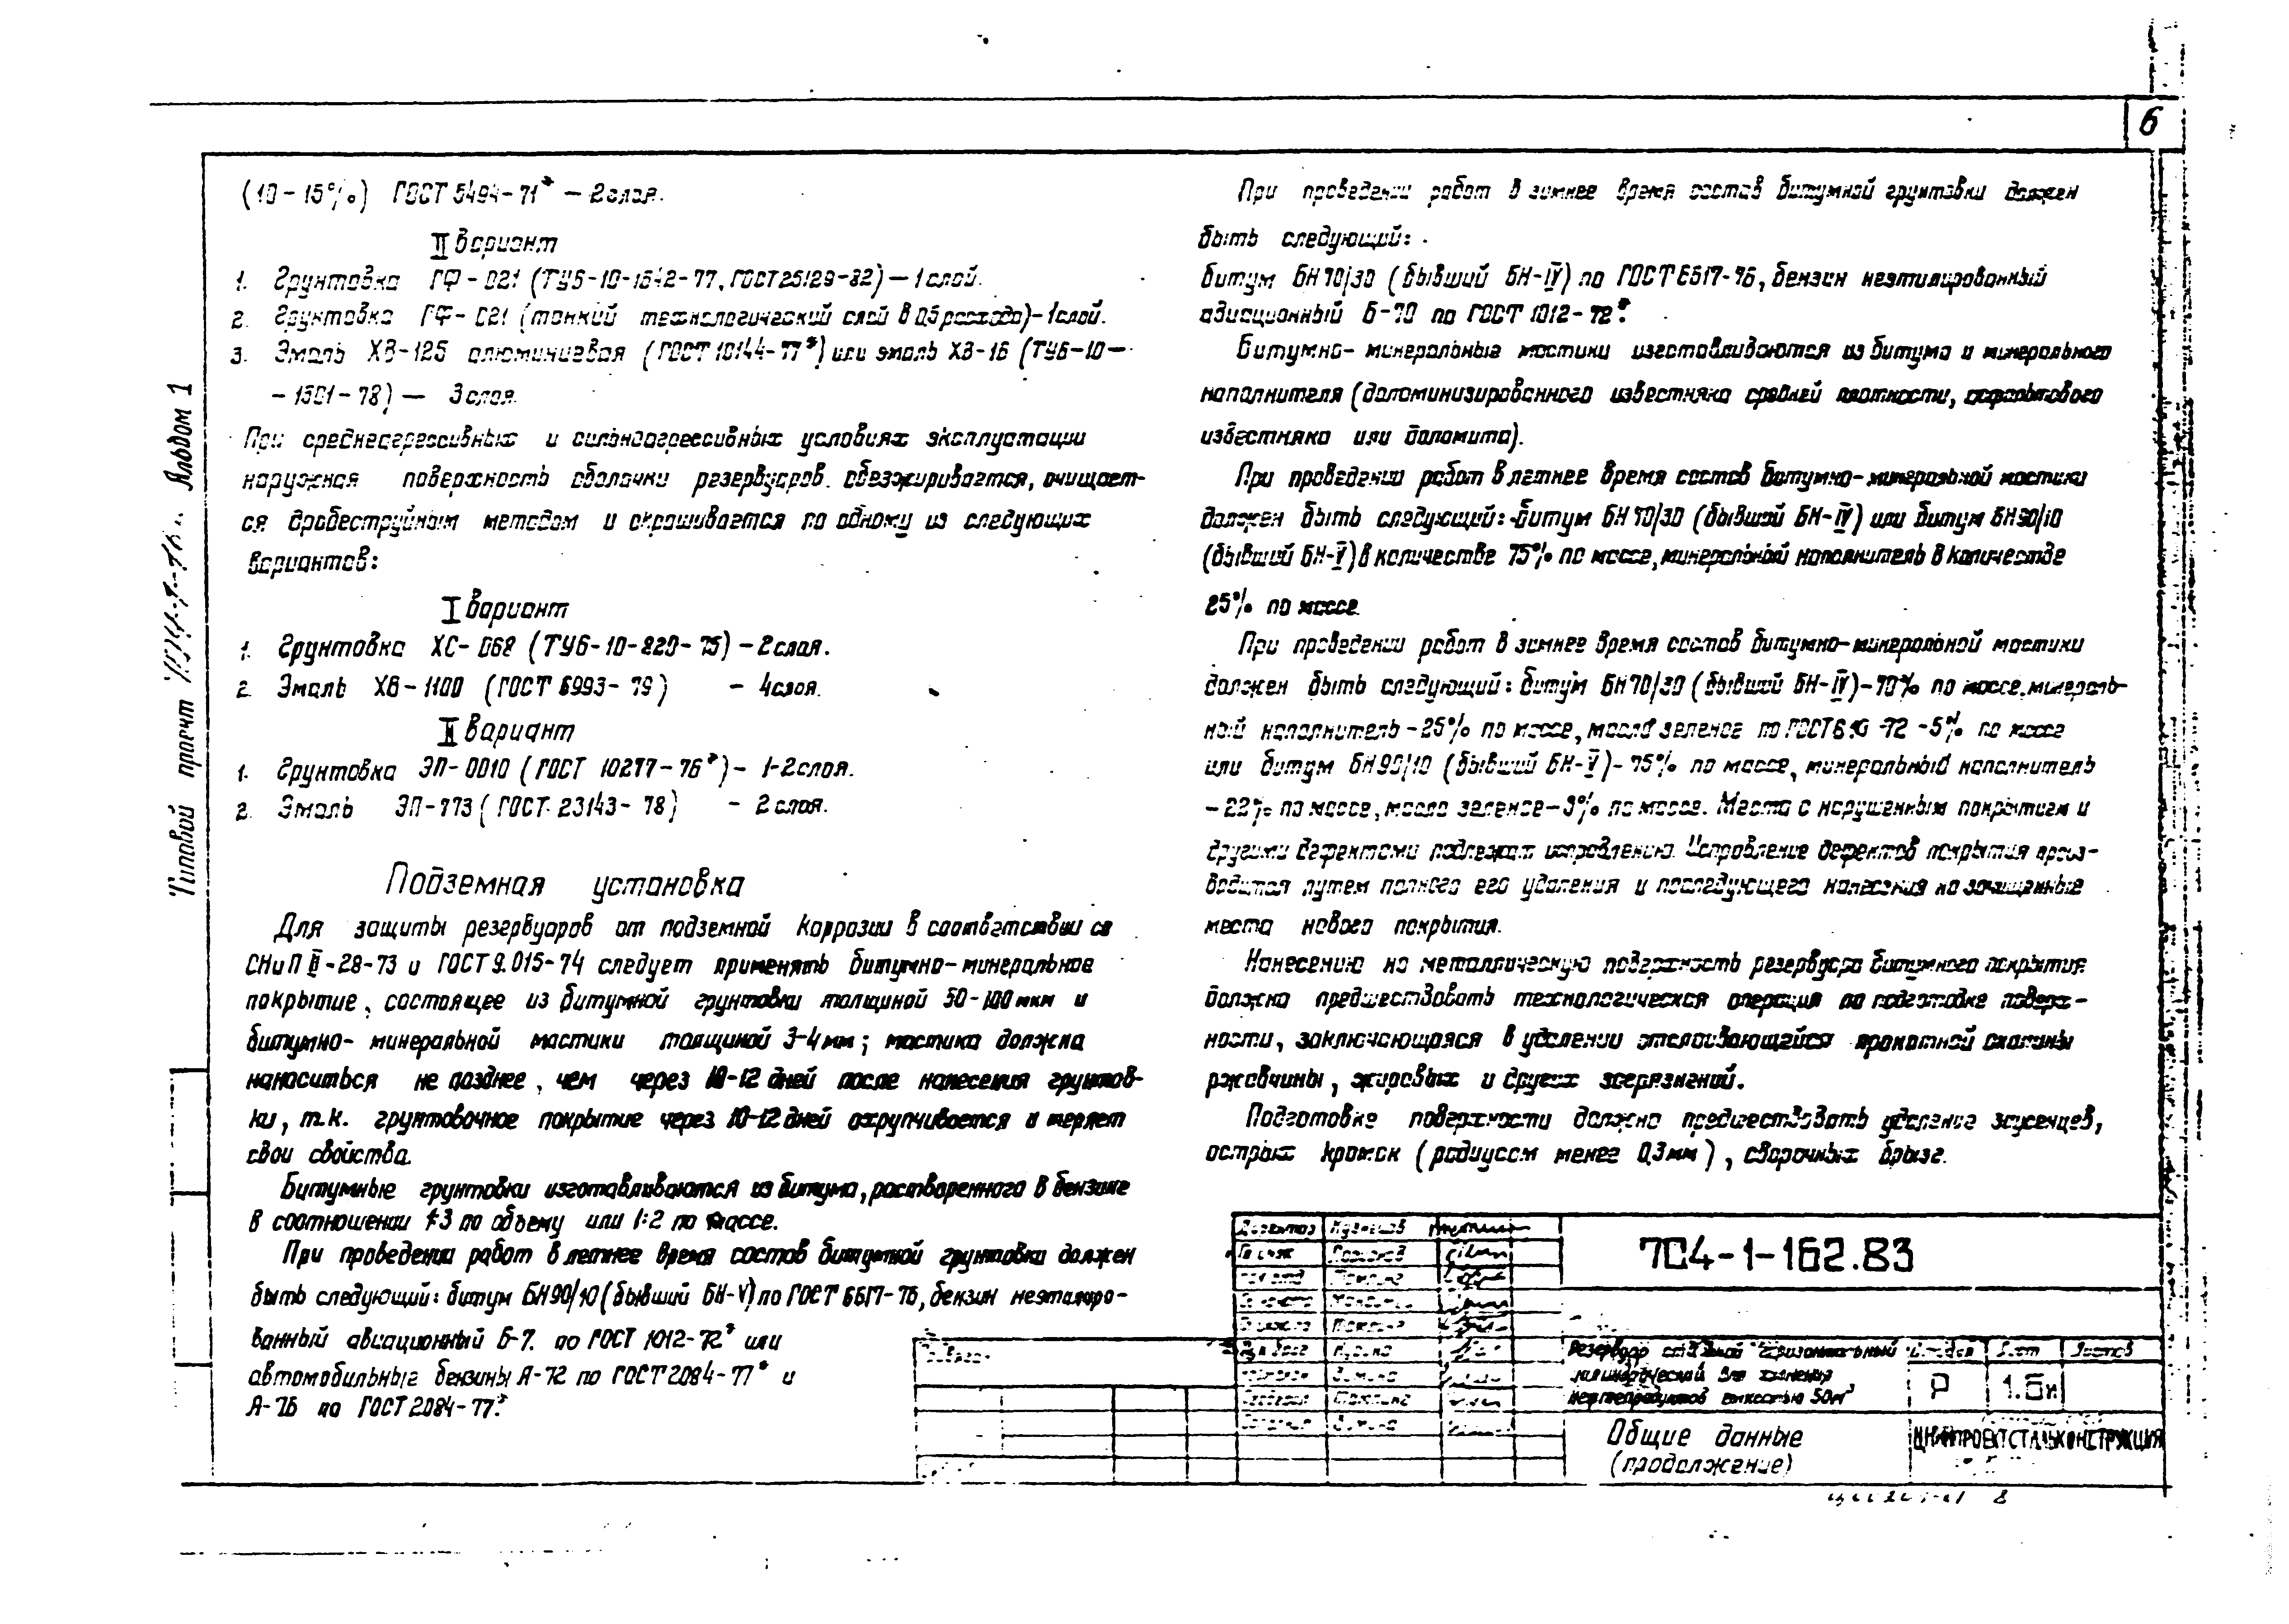 6
(10-15%) ГОСТ 5494-71* — 2 слоя.
II вариант
1. Грунтовка ГФ-021 (ТУ6-10-1642-77, ГОСТ 25129-82) — 1 слой.
2. Грунтовка ГФ-021 (тонкий технологический слой в 0,5 расхода) — 1 слой.
3. Эмаль ХВ-125 алюминиевая (ГОСТ 10144-77*) или эмаль ХВ-16 (ТУ6-10-
-1301-78) — 3 слоя.
При среднеагрессивных и сильноагрессивных условиях эксплуатации
наружная поверхность оболочки резервуаров обезжиривается, очищает-
ся дробеструйным методом и окрашивается по одному из следующих
вариантов:
I вариант
1. Грунтовка ХС-068 (ТУ6-10-820-75) — 2 слоя.
2. Эмаль ХВ-1100 (ГОСТ 6993-79) — 4 слоя.
II вариант
1. Грунтовка ЭП-0010 (ГОСТ 10277-76*) — 1-2 слоя.
2. Эмаль ЭП-773 (ГОСТ 23143-78) — 2 слоя.
Подземная установка
Для защиты резервуаров от подземной коррозии в соответствии со
СНиП II-28-73 и ГОСТ 9.015-74 следует применять битумно-минеральное
покрытие, состоящее из битумной грунтовки толщиной 50-100 мкм и
битумно-минеральной мастики толщиной 3-4 мм; мастика должна
наноситься не позднее, чем через 10-12 дней после нанесения грунтов-
ки, т.к. грунтовочное покрытие через 10-12 дней охрупчивается и теряет
свои свойства.
Битумные грунтовки изготавливаются из битума, растворенного в бензине
в соотношении 1:3 по объему или 1:2 по массе.
При проведении работ в летнее время состав битумной грунтовки должен
быть следующий: битум БН90/10 (бывший БН-V) по ГОСТ 6617-76, бензин неэтилиро-
ванный авиационный Б-7. по ГОСТ 1012-72* или
автомобильные бензины А-72 по ГОСТ 2084-77* и
А-76 по ГОСТ 2084-77*.
При проведении работ в зимнее время состав битумной грунтовки должен
быть следующий:
битум БН70/30 (бывший БН-IV) по ГОСТ 6617-76, бензин неэтилированный
авиационный Б-70 по ГОСТ 1012-72*.
Битумно-минеральные мастики изготавливаются из битума и минерального
наполнителя (доломинизированного известняка средней плотности, асфальтового
известняка или доломита).
При проведении работ в летнее время состав битумно-минеральной мастики
должен быть следующий: битум БН70/30 (бывший БН-IV) или битум БН90/10
(бывший БН-V) в количестве 75% по массе, минеральный наполнитель в количестве
25% по массе.
При проведении работ в зимнее время состав битумно-минеральной мастики
должен быть следующий: битум БН70/30 (бывший БН-IV) - 70% по массе, минераль-
ный наполнитель - 25% по массе, масло зеленое по ГОСТ -72 - 5% по массе
или битум БН90/10 (бывший БН-V) - 75% по массе, минеральный наполнитель
- 22% по массе, масло зеленое - 3% по массе. Места с нарушенным покрытием и
другими дефектами подлежат исправлению. Исправление дефектов покрытия произ-
водится путем полного его удаления и последующего нанесения на зачищенные
места нового покрытия.
Нанесению на металлическую поверхность резервуара битумного покрытия
должна предшествовать технологическая операция по подготовке поверх-
ности, заключающаяся в удалении отслаивающейся прокатной окалины
ржавчины, жировых и других загрязнений.
Подготовке поверхности должно предшествовать удаление заусенцев,
острых кромок (радиусом менее 0,3 мм), сварочных брызг.
Типовой проект Альбом 1
704-1-162.83
Резервуар стальной горизонтальный
цилиндрический для хранения
нефтепродуктов емкостью 50 м³
Стадия Лист Листов
Р 1.6и
Общие данные
(продолжение)
ЦНИИПРОЕКТСТАЛЬКОНСТРУКЦИЯ
8